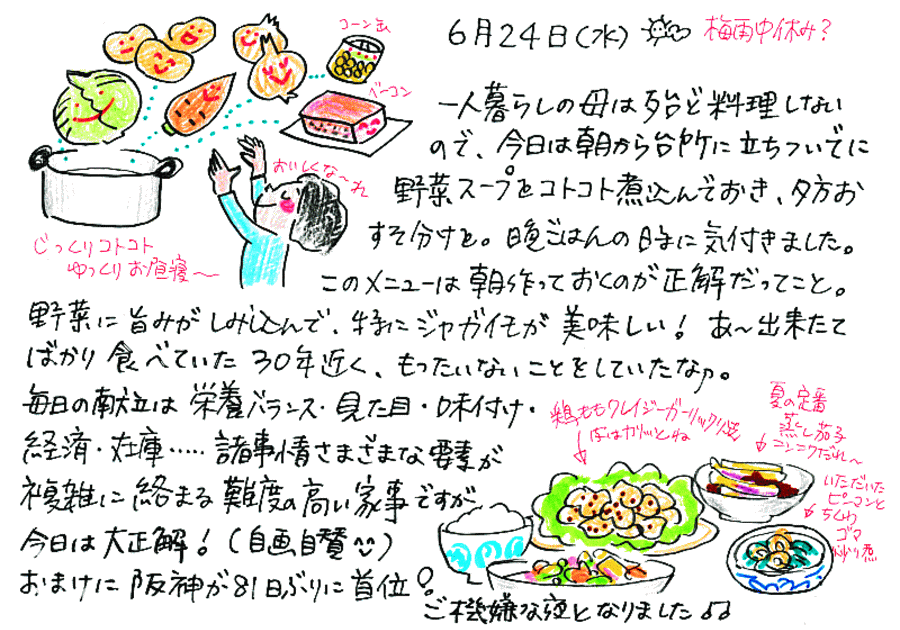 6月24日(水)
梅雨中休み?
コーン缶
ベーコン
おいしくな〜れ
じっくりコトコト
ゆっくりお昼寝〜
一人暮らしの母は殆ど料理しない
ので、今日は朝から台所に立ちついでに
野菜スープをコトコト煮込んでおき、夕方お
すそ分けを。晩ごはんの時に気付きました。
このメニューは朝作っておくのが正解だってこと。
野菜に旨みがしみ込んで、特にジャガイモが美味しい!あ〜出来たて
ばかり食べていた30年近く、もったいないことをしていたなァ。
毎日の献立は栄養バランス・見た目・味付け・
経済・在庫……諸事情さまざまな要素が
複雑に絡まる難度の高い家事ですが
今日は大正解!(自画自賛)
おまけに阪神が81日ぶりに首位!
ご機嫌な夜となりました♪♪
鶏ももクレイジーガーリックソルト
夏の定番
蒸し茄子
ニンニクだれ〜
いただいた
ピーマンと
ちくわ
ゴマ
炒り煮